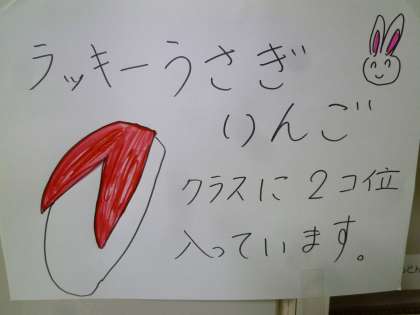 ラッキーうさぎ
りんご
クラスに2コ位
入っています。